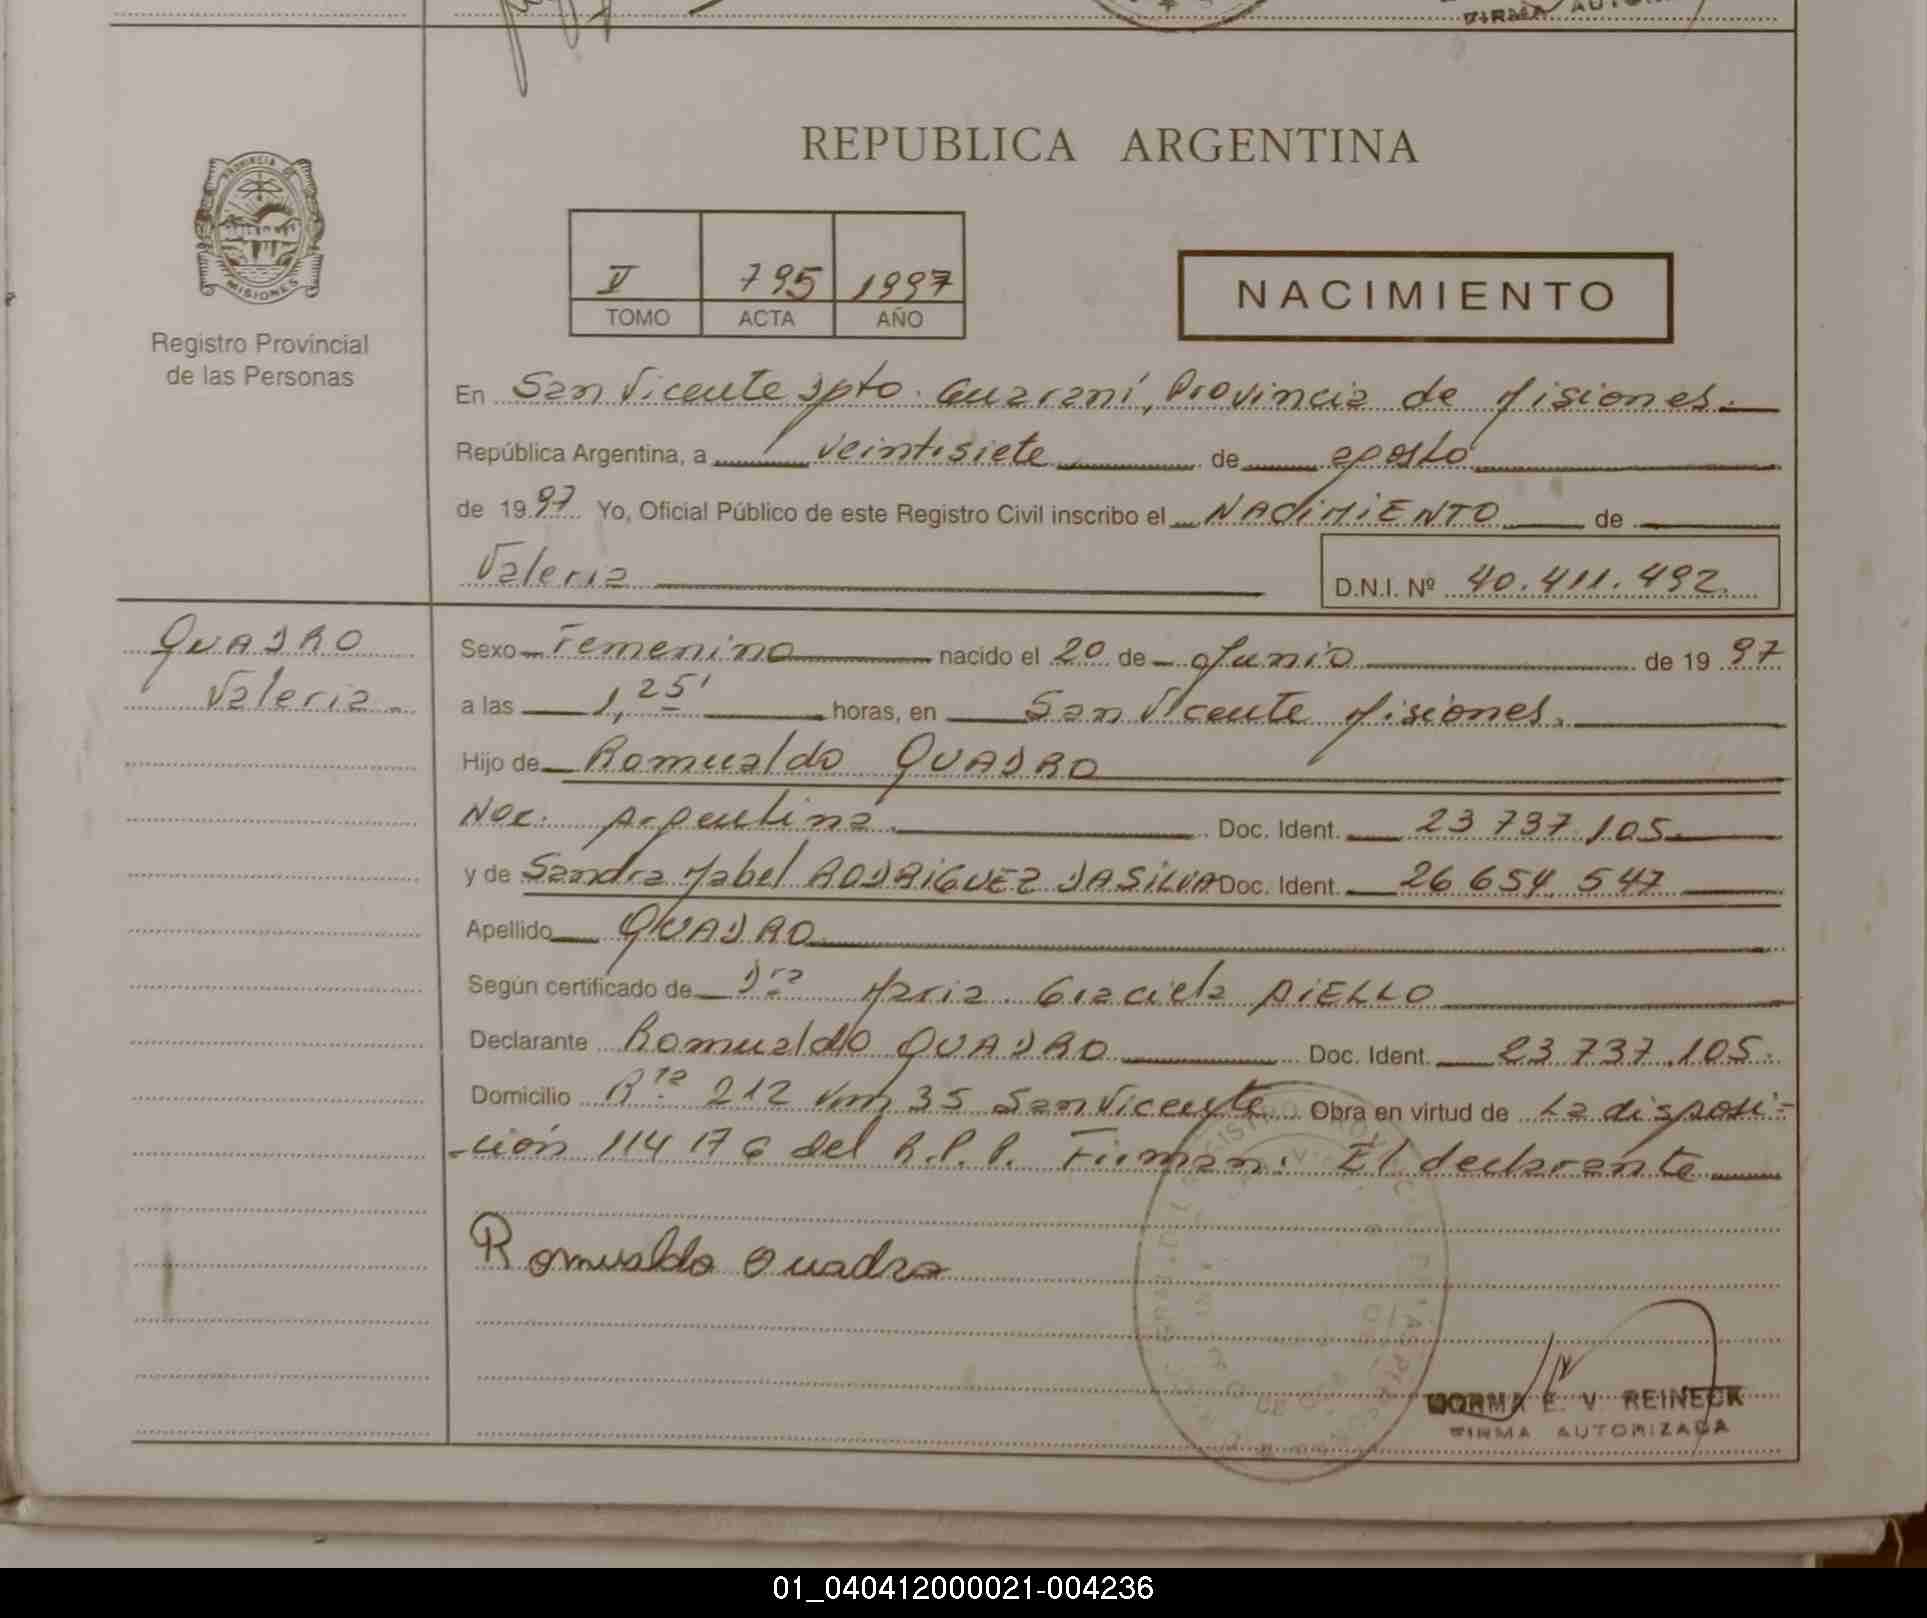 FIRMA AUTOR
REPUBLICA ARGENTINA
PROVINCIA DE
MISIONES
Registro Provincial
de las Personas
V 795 1997
TOMO ACTA AÑO
NACIMIENTO
En San Vicente Dpto. Guaraní, Provincia de Misiones.
República Argentina, a veintisiete de agosto
de 1997 Yo, Oficial Público de este Registro Civil inscribo el NACIMIENTO de
Valeria D.N.I. Nº 40.411.492.
QUADRO
Valeria.
Sexo Femenino nacido el 20 de Junio de 1997
a las 1,25' horas, en San Vicente Misiones.
Hijo de Romualdo QUADRO
Nac. Argentina Doc. Ident. 23 737.105.
y de Sandra Mabel RODRIGUEZ DASILVA Doc. Ident. 26 654 547
Apellido QUADRO
Según certificado de Dra Maria Graciela AiELLO
Declarante Romualdo QUADRO Doc. Ident. 23 737.105.
Domicilio Rta 212 Km 35 San Vicente Obra en virtud de La disposi-
-ción 114 17 6 del R.P.P. Firman: El declarante
Romualdo Quadro
NORMA E. V. REINECK
FIRMA AUTORIZADA
01_040412000021-004236